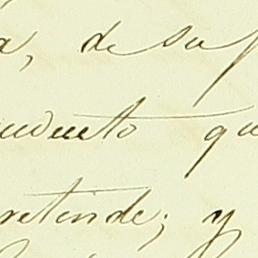 a, de su
udueto qu
retende; y